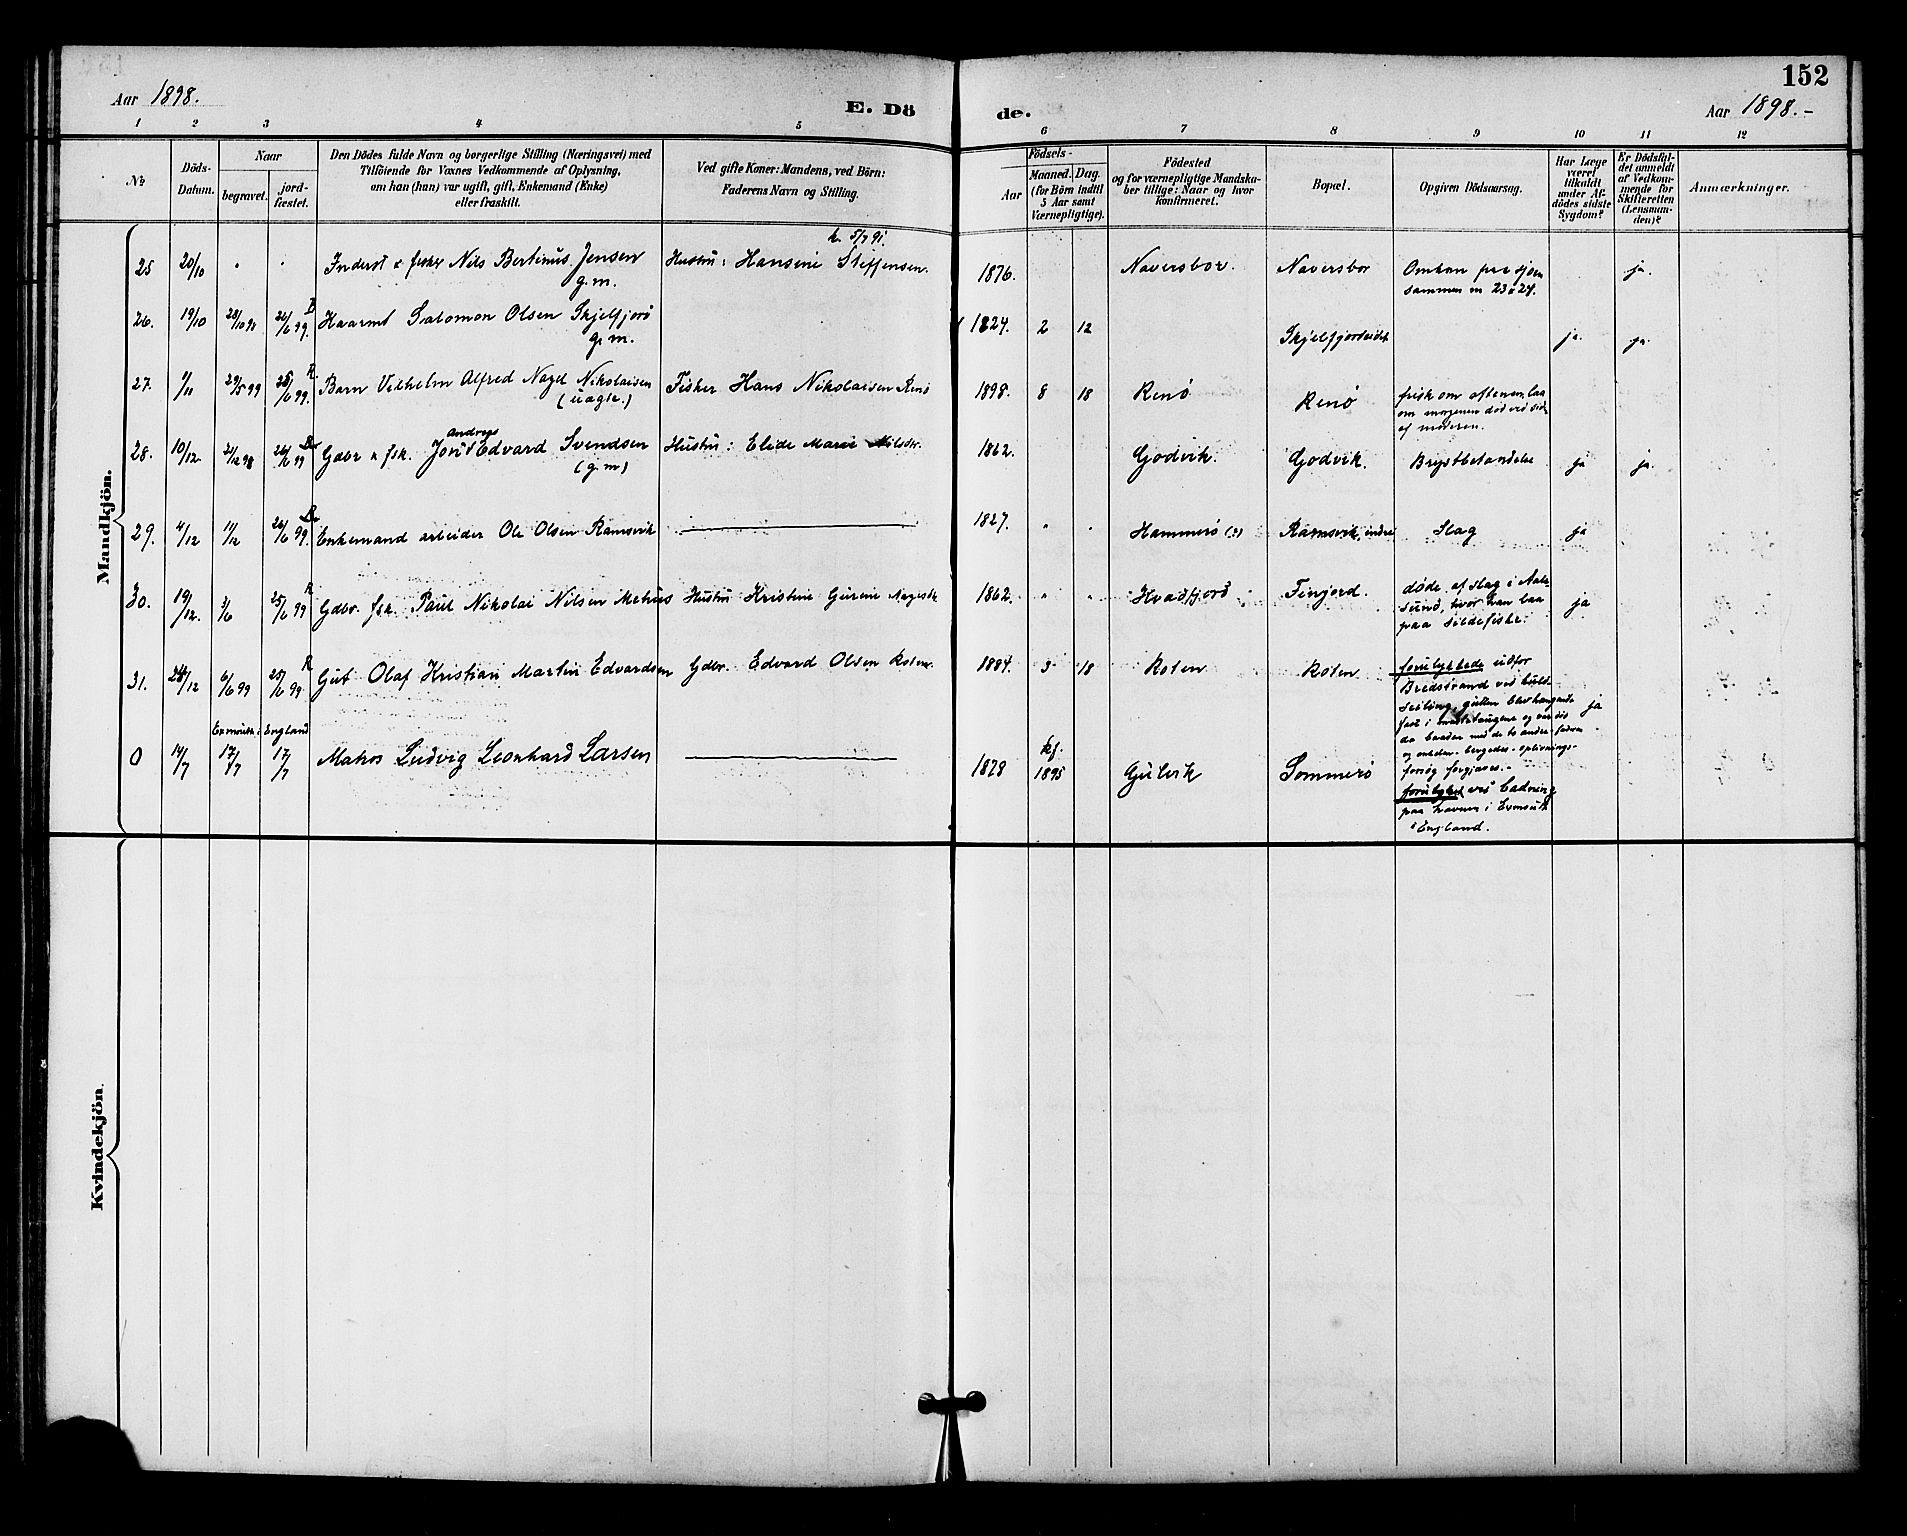 152
Aar 1898.
E. Dö
de.
Aar 1898.-
1 2 3 4 5 6 7 8 9 10 11 12
No
Döds-
Datum.
Naar
begravet.
jord-
fæstet.
Den Dödes fulde Navn og borgerlige Stilling (Næringsvei) med
Tilföiende for Voxnes Vedkommende af Oplysning,
om han (hun) var ugift, gift, Enkemand (Enke)
eller fraskilt.
Ved gifte Koner: Mandens, ved Börn:
Faderens Navn og Stilling.
Födsels-
Aar
Maaned. Dag.
(for Börn indtil
5 Aar samt
Værnepligtige).
Födested
og for værnepligtige Mandska-
ber tillige: Naar og hvor
konfirmeret.
Bopæl.
Opgiven Dödsaarsag.
Har Læge
været
tilkaldt
under Af-
dödes sidste
Sygdom?
Er Dödsfal-
det anmeldt
af Vedkom-
mende for
Skifteretten
(Lensman-
den)?
Anmærkninger.
Mandkjön.
25 20/10 Inderst & fisker Nils Bertinus Jensen g.m. Hustru: Hansine Steffensen. 1876. Naversbor. Naversbor Omkom paa sjøen
sammen m 23 & 24. ja.
26. 19/10 26/6 99. Salomon Olsen Skjelfjord
g.m. 1824. 2 12 Skjelfjordeidet ja. ja.
27. 29/5 99 25/6 99. R Barn Vilhelm Alfred Nagel Nikolaisen Fisker Hans Nikolaisen Renø 1898. 8 18 Renø Renø frisk om aftenen, laa
om morgenen død ved side
af moderen.
28. 10/12 26/6 99 Gdbr & fsk. Andreas Edvard Svendsen
(g.m) Hustru: Elide Marie Nilsdtr. 1862. Godvik. Godvik. Brystbetændelse ja ja.
29. 4/12 11/12 26/6 99. Enkemand arbeider Ole Olsen Ramsvik 1827. Hammerø (?) Ramsvik, indre Slag ja
30. 19/12. 3/6 25/6 99 R Gdbr. fsk. Paul Nikolai Nilsen Hustru Kristine 1862. Finjord. døde af slag i Aale-
sund, hvor han laa
paa sildefiske. ja
31. 6/6 99 25/6 99 R Gut Olaf Kristian Martin Edvardsen Gdbr. Edvard Olsen Roten. 1884. 3 18 Roten Roten forulykkede udfor
Bredstrand ved
seiling, gutten blev hængende
fast i og var død
da baaden med de to andre faderen
og bergedes - oplivnings-
forsøg forgjæves.- ja
Exmouth i England
0 14/7 17/7 17/7 Matros Ludvig Leonhard Larsen 1878 kf.
1895 Gulvik Sommerø forulykket ved badning
paa havnen i Exmouth
i England.
Kvindekjön.